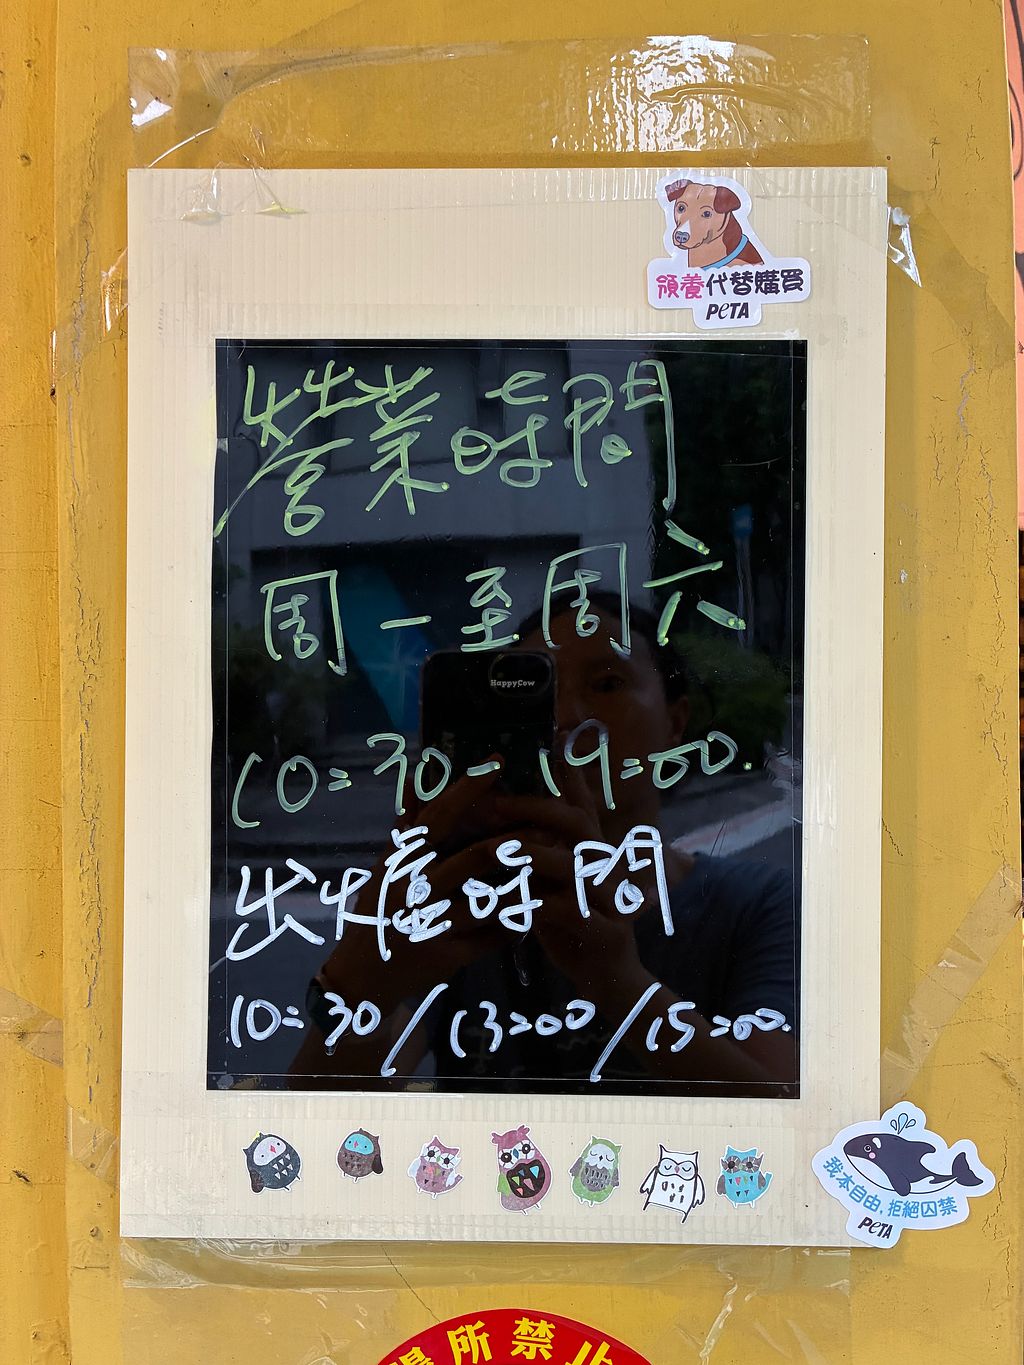 領養代替購買
PETA
營業時間
周一至周六
10:30-19:00.
HappyCow
出爐時間
10:30/13:00/15:00.
我本自由,拒絕囚禁
PETA
場所禁止